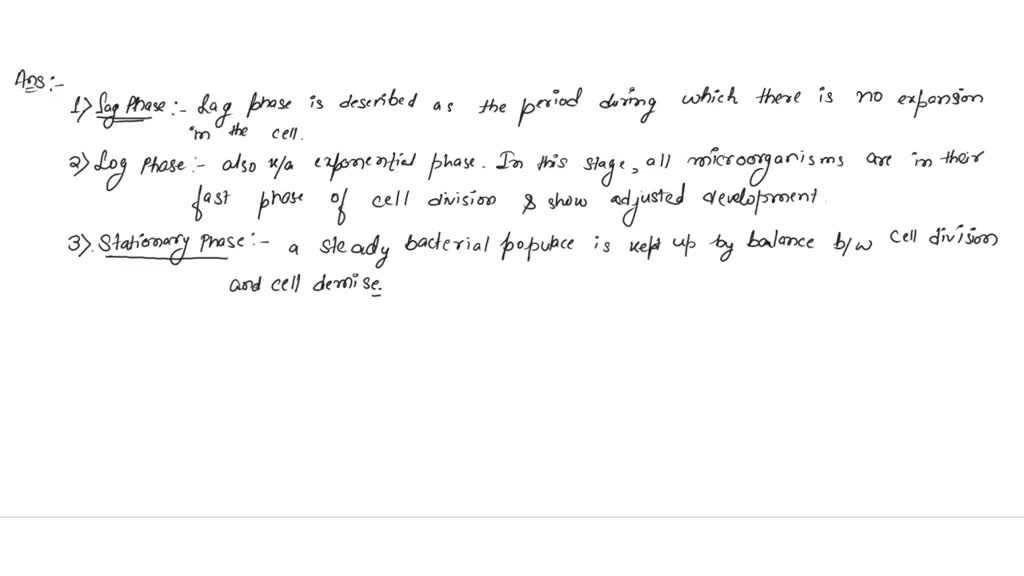 Ans:-
1) Lag Phase:- Lag phase is described as the period during which there is no expansion
in the cell.
2) Log Phase:- also k/a exponential phase. In this stage, all microorganisms are in their
fast phase of cell division & show adjusted development.
3). Stationary Phase:- a steady bacterial populace is kept up by balance b/w cell division
and cell demise.